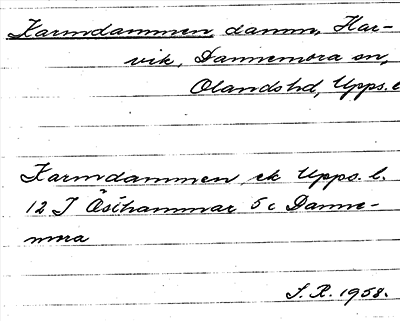 Karmdammen, damm, Har-
vik, Dannemora sn,
Olandshd, Upps.
Karmdammen ek Upps. l.
12 I Östhammar 5 c Danne-
mora
S. R. 1958.